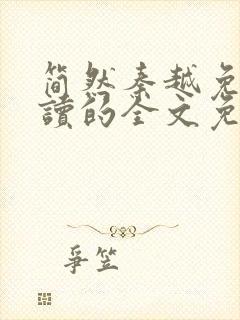 简然秦越免
读的全文免
争笠